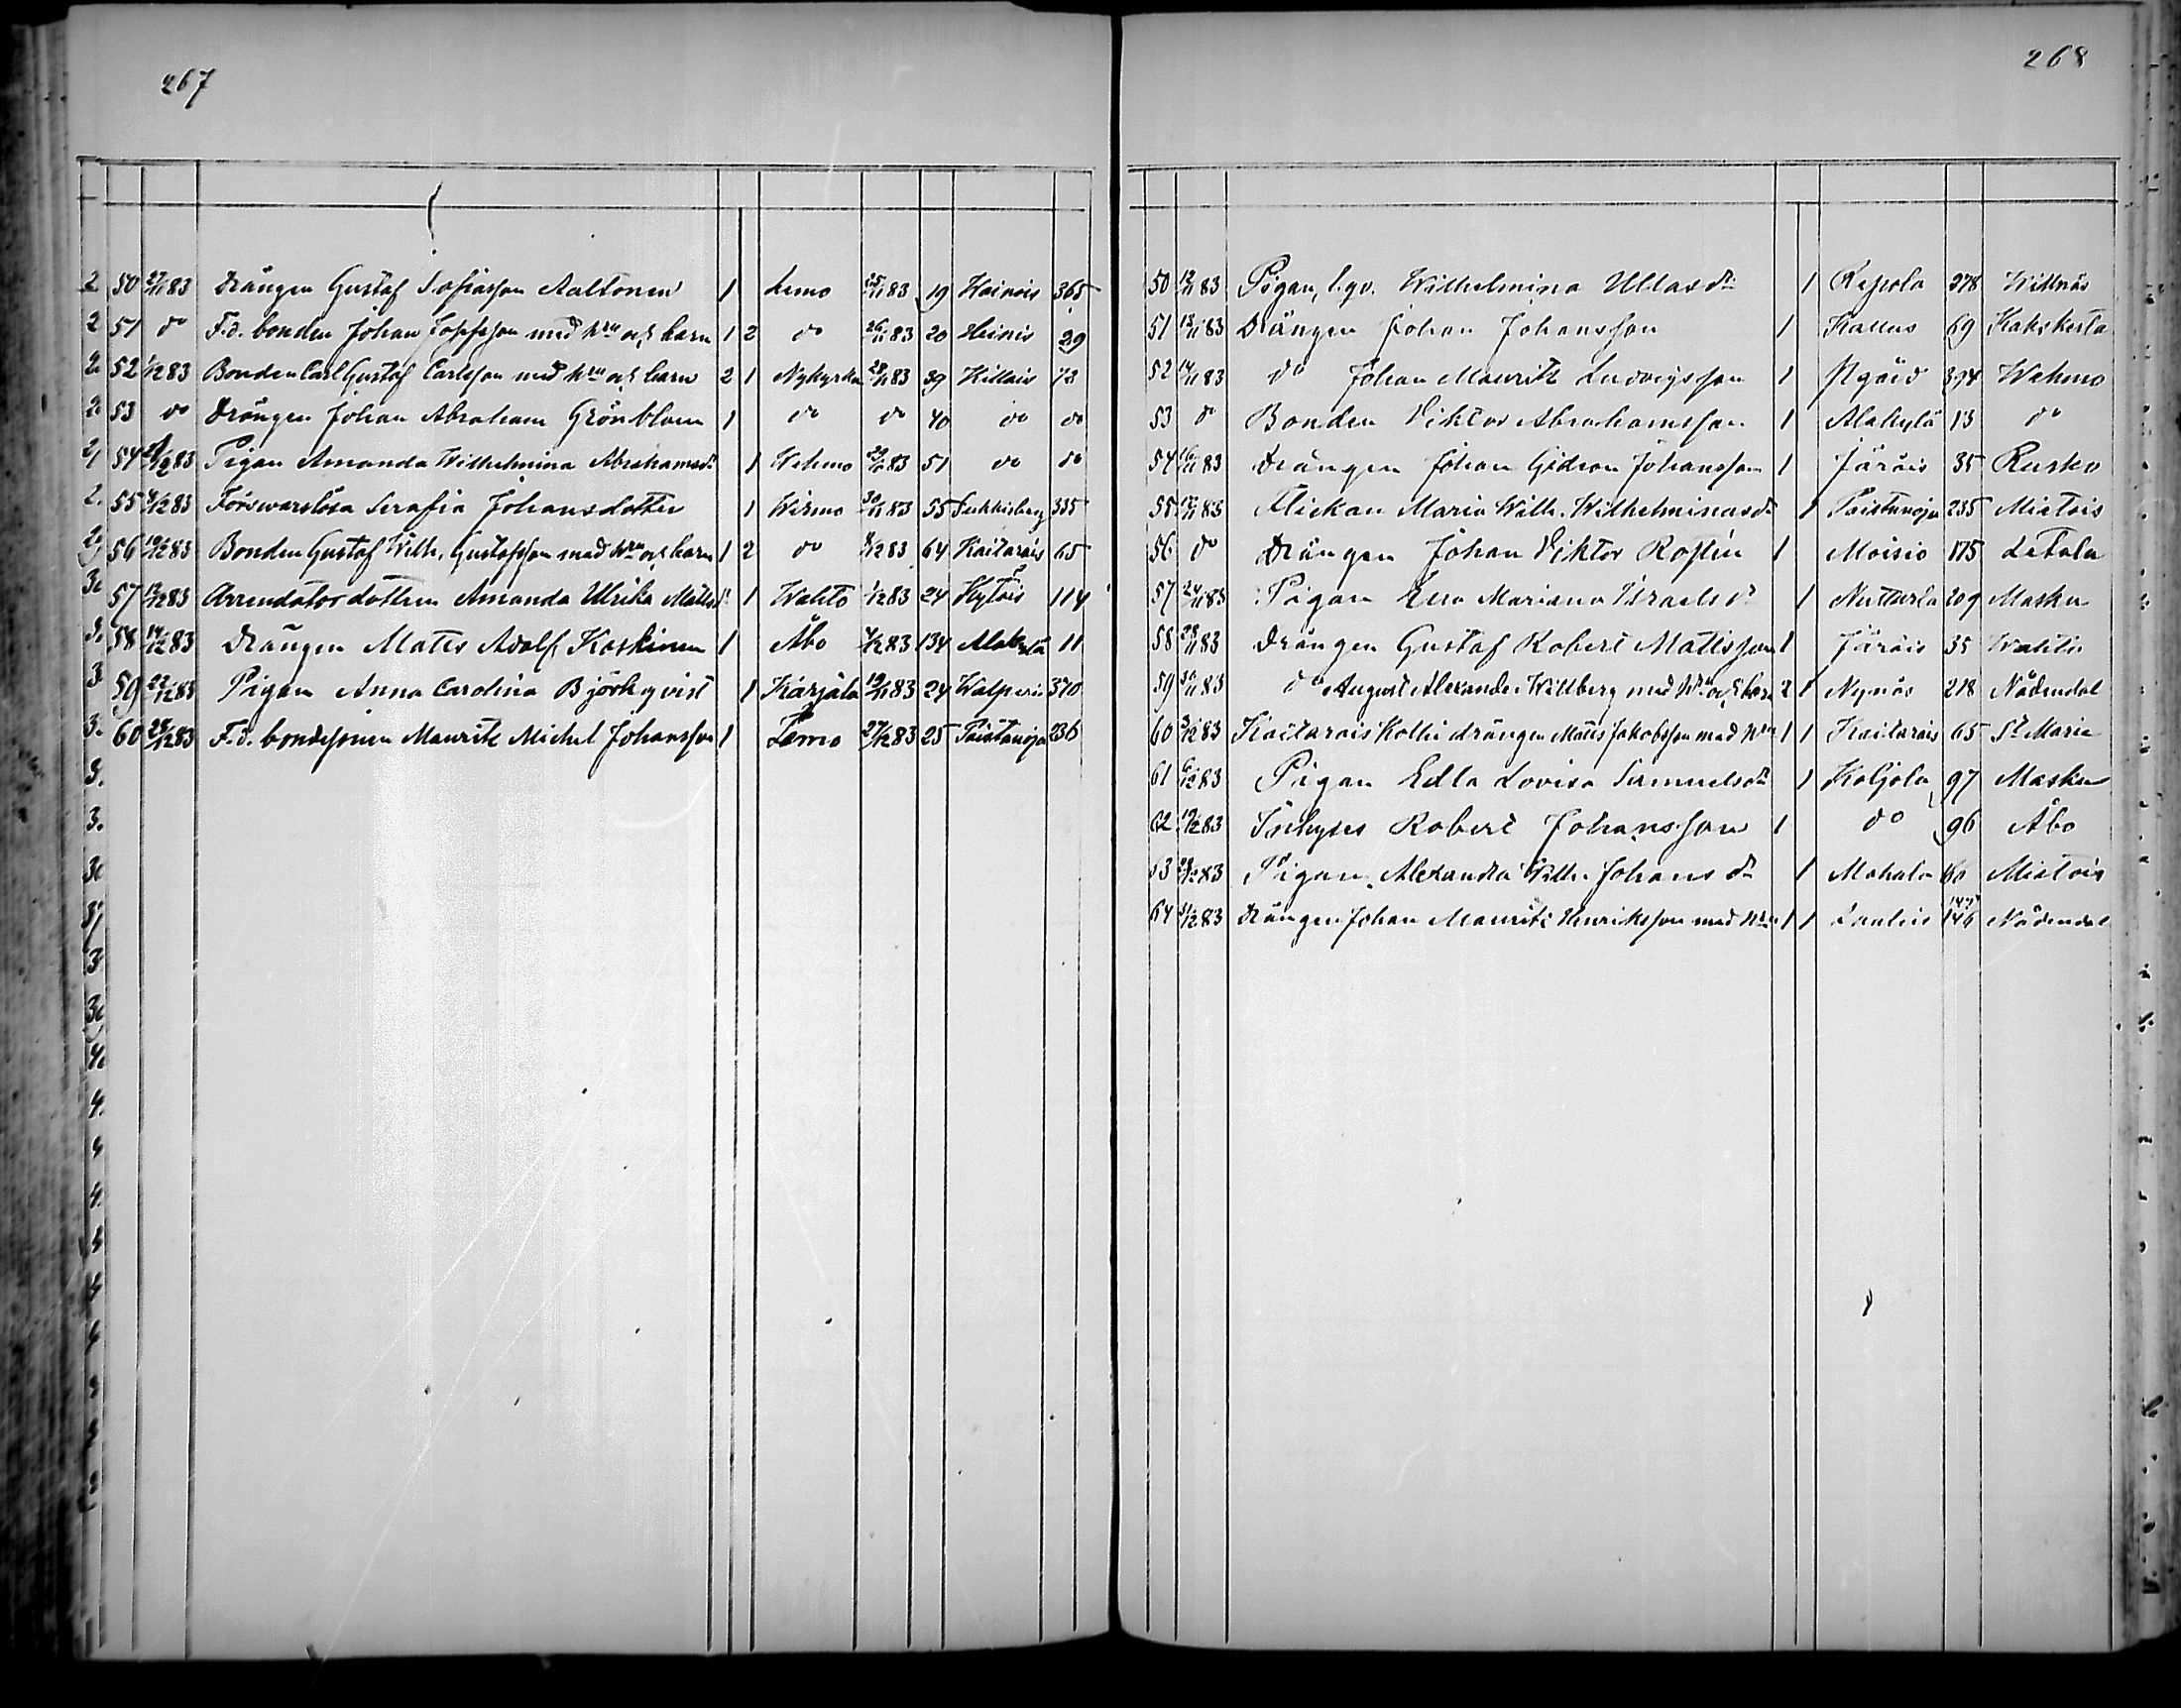 267
50 27/11 83 Drängen Gustaf Sofiasson Aaltonen 1 Lemo 25/11 83 19 Hainois 365
51 do F.d. bonden Johan Josefsson med hru och barn 1 2 do 26/11 83 20 Heinis 29
52 1/12 83 Bonden Carl Gustaf Carlsson med hru och barn 2 1 Nykyrka 28/11 83 39 Killais 73
53 do Drängen Johan Abraham Grönblom 1 do do 40 do do
54 83 Pigan Amanda Wilhelmina Abrahamsdr 1 Wehmo 29/11 83 51 do do
55 /12 83 Förswarslösa Serafia Johansdotter 1 Wirmo 30/11 83 55 335
56 10/12 83 Bonden Gustaf Wilh. Gustafsson med hru och barn 1 2 do /12 83 64 Kaitarais 65
57 12/12 83 Arrendatorsdottren Amanda Ulrika Mattsdr 1 Wahto 1/12 83 24 Kytöis 114
58 14/12 83 Drängen Matts Adolf Koskinen 1 Åbo /12 83 134 Alakylä 11
59 22/12 83 Pigan Anna Carolina Björkqvist 1 Karjala 19/12 83 24 Walperis 370
60 28/12 83 F.d. bondesonen Mauritz Michel Johansson 1 Lemo 27/12 83 25 Paistanoja 236
268
50 12/11 83 Pigan, l.qv. Wilhelmina Ullasdr 1 Repola 278 Willnäs
51 13/11 83 Drängen Johan Johansson 1 Kallus 69 Kakskerta
52 14/11 83 do Johan Mauritz Ludvigsson 1 394 Wehmo
53 do Bonden Viktor Abrahamsson 1 Alakylä 13 do
54 16/11 83 Drängen Johan Gideon Johansson 1 Järäis 35 Rusko
55 17/11 83 Flickan Maria Wilh. Wilhelminasdr 1 Paistanoja 235 Mietois
56 do Drängen Johan Viktor Roslin 1 Moisio 175 Letala
57 24/11 83 Pigan Eva Mariana Israelsdr 1 Nutturla 209 Masku
58 28/11 83 Drängen Gustaf Robert Mattsson 1 Järäis 35 Wahto
59 30/11 83 do August Alexander Willberg med hru och barn 2 1 Nynäs 218 Nådendal
60 3/12 83 Kaitarais Kolli drängen Matts Jakobsson med hru 1 1 Kaitarais 65 St Marie
61 6/12 83 Pigan Edla Lovisa Samuelsdr 1 Koljola 97 Masku
62 19/12 83 Inhyses Robert Johansson 1 do 96 Åbo
63 28/12 83 Pigan Alexandra Wilh. Johansdr 1 Mahala 60 Mietois
64 31/12 83 Drängen Johan Mauritz Henriksson med hru 1 1 146 Nådendal